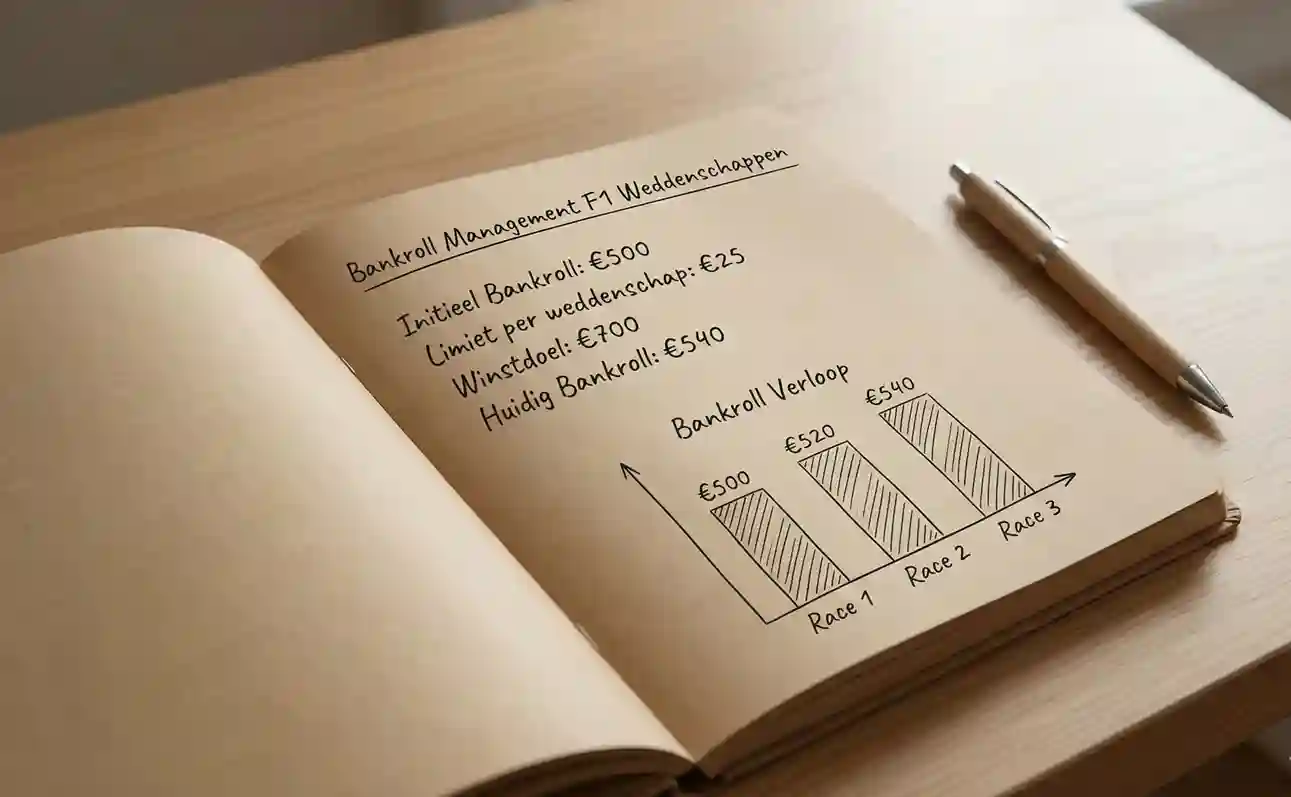 Bankroll Management F1 Weddenschappen
Initieel Bankroll: €500
Limiet per weddenschap: €25
Winstdoel: €700
Huidig Bankroll: €540
Bankroll Verloop
€500
€520
€540
Race 1
Race 2
Race 3